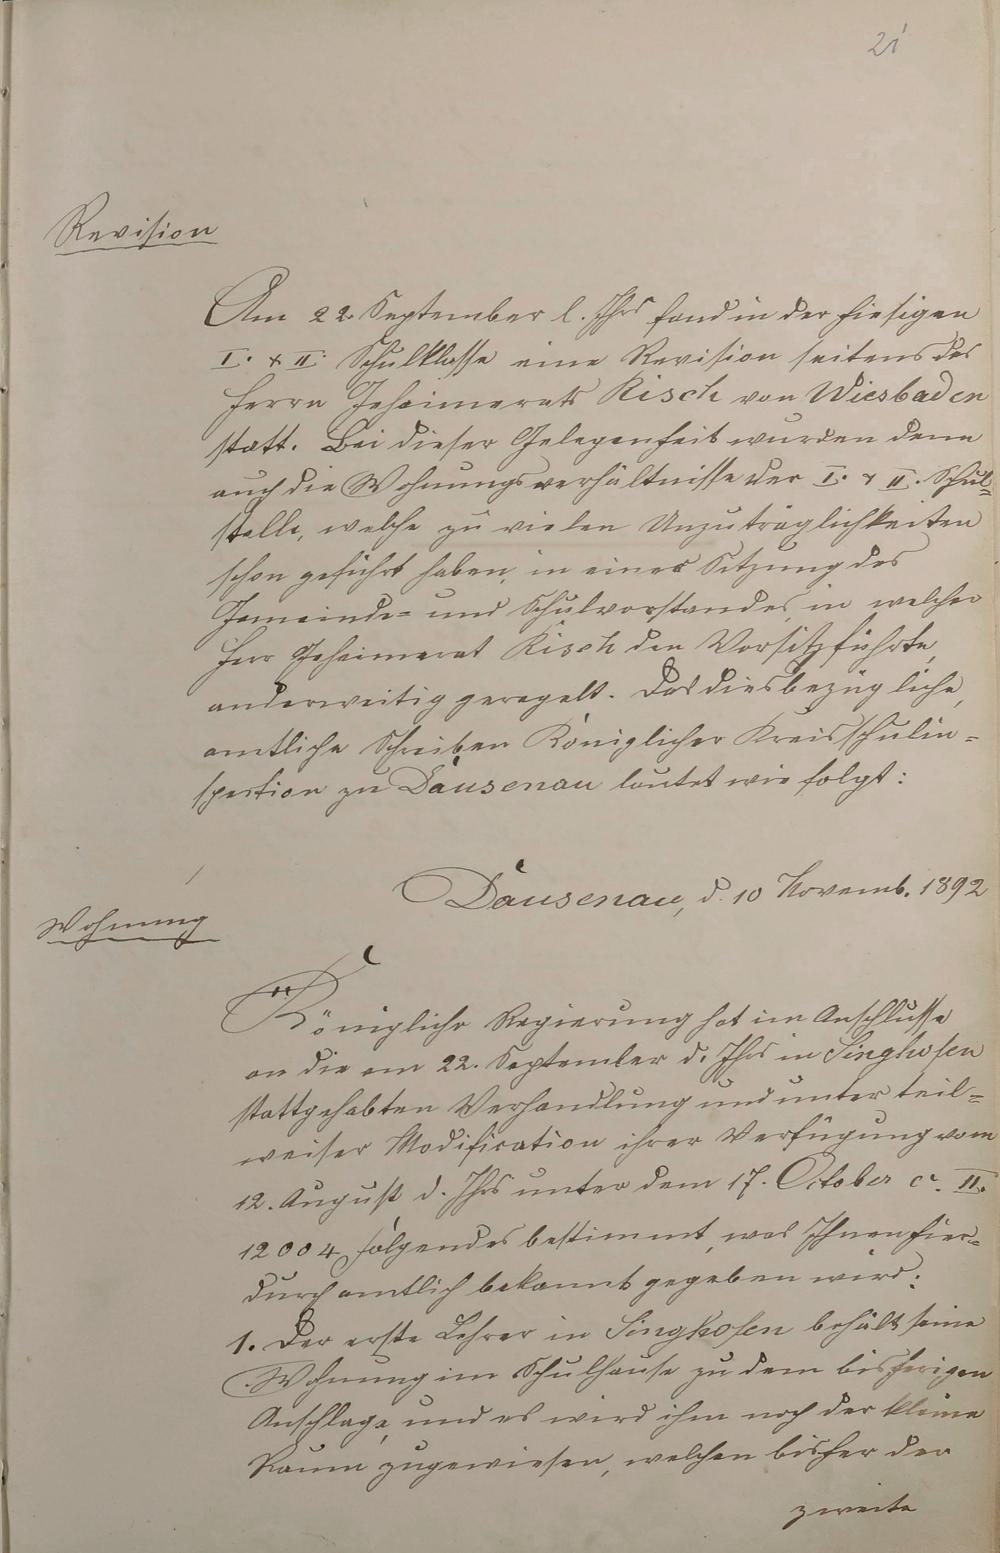 21
Revision
Am 22. September l. Jhrs fand in der hiesigen
I. & II. Schulklasse eine Revision seitens des
Herrn Geheimerats Risch von Wiesbaden
statt. Bei dieser Gelegenheit wurden denn
auch die Wohnungsverhältnisse der I. & II. Schul=
stelle, welche zu vielen Unzuträglichkeiten
schon geführt haben, in einer Sitzung des
Gemeinde= und Schulvorstandes, in welcher
Herr Geheimerat Risch den Vorsitz führte,
anderweitig geregelt. Das diesbezügliche,
amtliche Schreiben Königlicher Kreisschulin=
spection zu Dausenau lautet wie folgt:
Dausenau, d. 10 Novemb. 1892
Wohnung
Königliche Regierung hat im Anschlusse
an die am 22. September d. Jhrs in Singhofen
stattgehabten Verhandlung und unter teil=
weiser Modification ihrer Verfügung vom
12. August d. Jhrs unter dem 17. October cr. II.
12004 folgendes bestimmt, was Ihnen hier=
durch amtlich bekannt gegeben wird:
1. Der erste Lehrer in Singhofen behält seine
Wohnung im Schulhause zu dem bisherigen
Anschlage, und es wird ihm noch der kleine
Raum zugewiesen, welchen bisher der
zweite